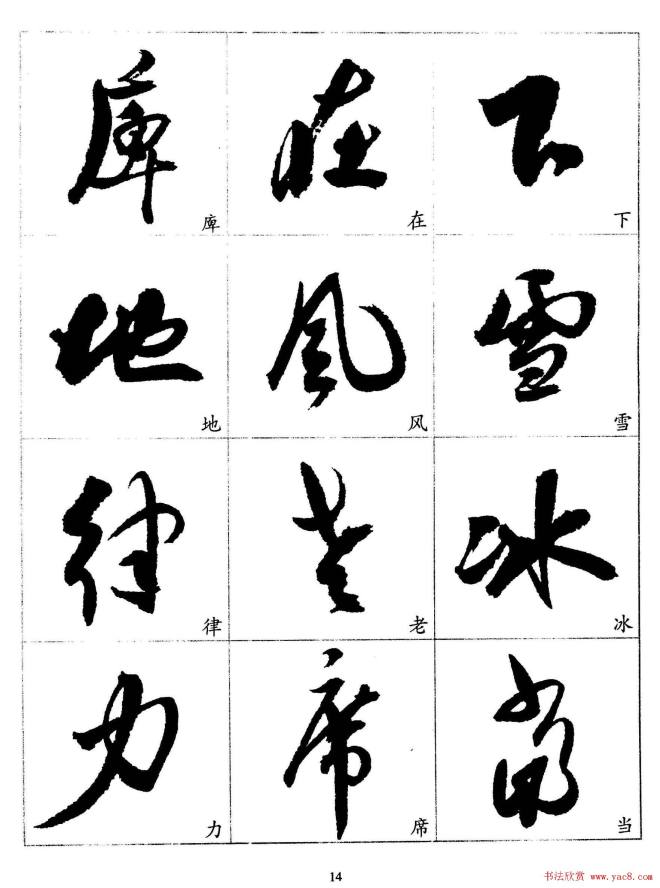 庳 在 下
庳 在 下
地 風 雪
地 风 雪
律 老 冰
律 老 冰
力 席 當
力 席 当
14
书法欣赏 www.yac8.com